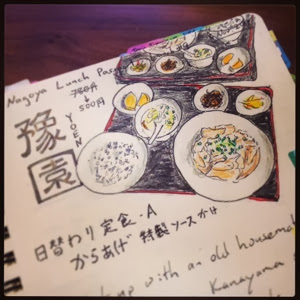 Nagoya Lunch Pas
780円
↓
500円
豫園
YOEN
日替わり定食・A
からあげ 特製ソースかけ
up with an old housema
Kanayama